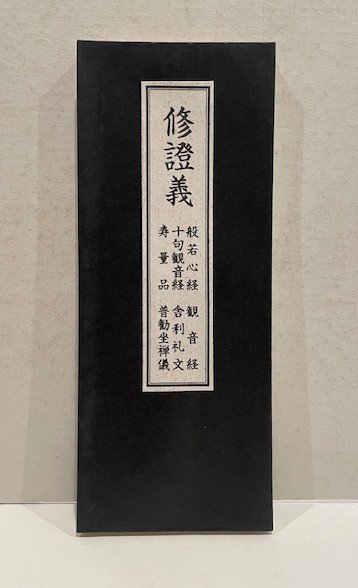 修證義
般若心経 観音経
十句観音経 舎利礼文
寿量品 普勧坐禅儀